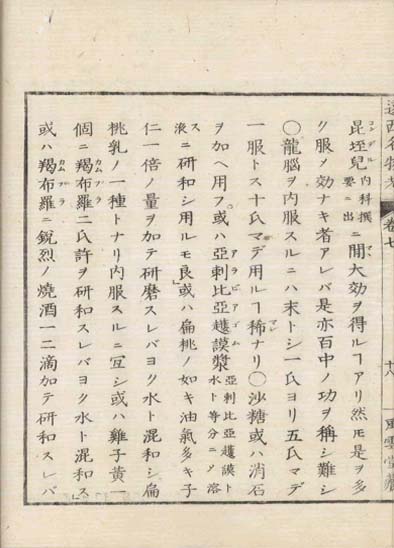 遠西名物考 卷七 十八 風雲堂藏
昆垤兒コンデル内科撰要ニ出ニ間マヽ大効ヲ得ルヿアリ然モ是ヲ多
ク服メ効ナキ者アレバ是亦百中ノ功ヲ稱シ難シ
〇龍腦ヲ內服スルニハ末トシ一氏ヨリ五氏マデ
一服トス十氏マデ用ルヿ稀マレナリ〇沙糖或ハ消石
ヲ加ヘ用フ」或ハ亞剌比亞護謨漿アラビアゴム亞剌比亞護謨ト水ト等分ニメ溶
ス液ニ研和シ用ルモ良」或ハ扁桃ノ如キ油氣多キ子
仁一倍ノ量ヲ加テ研磨スレバヨク水ト混和シ扁
桃乳ノ一種トナリ内服スルニ宜シ或ハ雞子黃一
個ニ羯布羅カムフラ二氏許ヲ研和スレバヨク水ト混和ス」
或ハ羯布羅カムフラニ銳烈ノ燒酒一二滴加テ研和スレバ